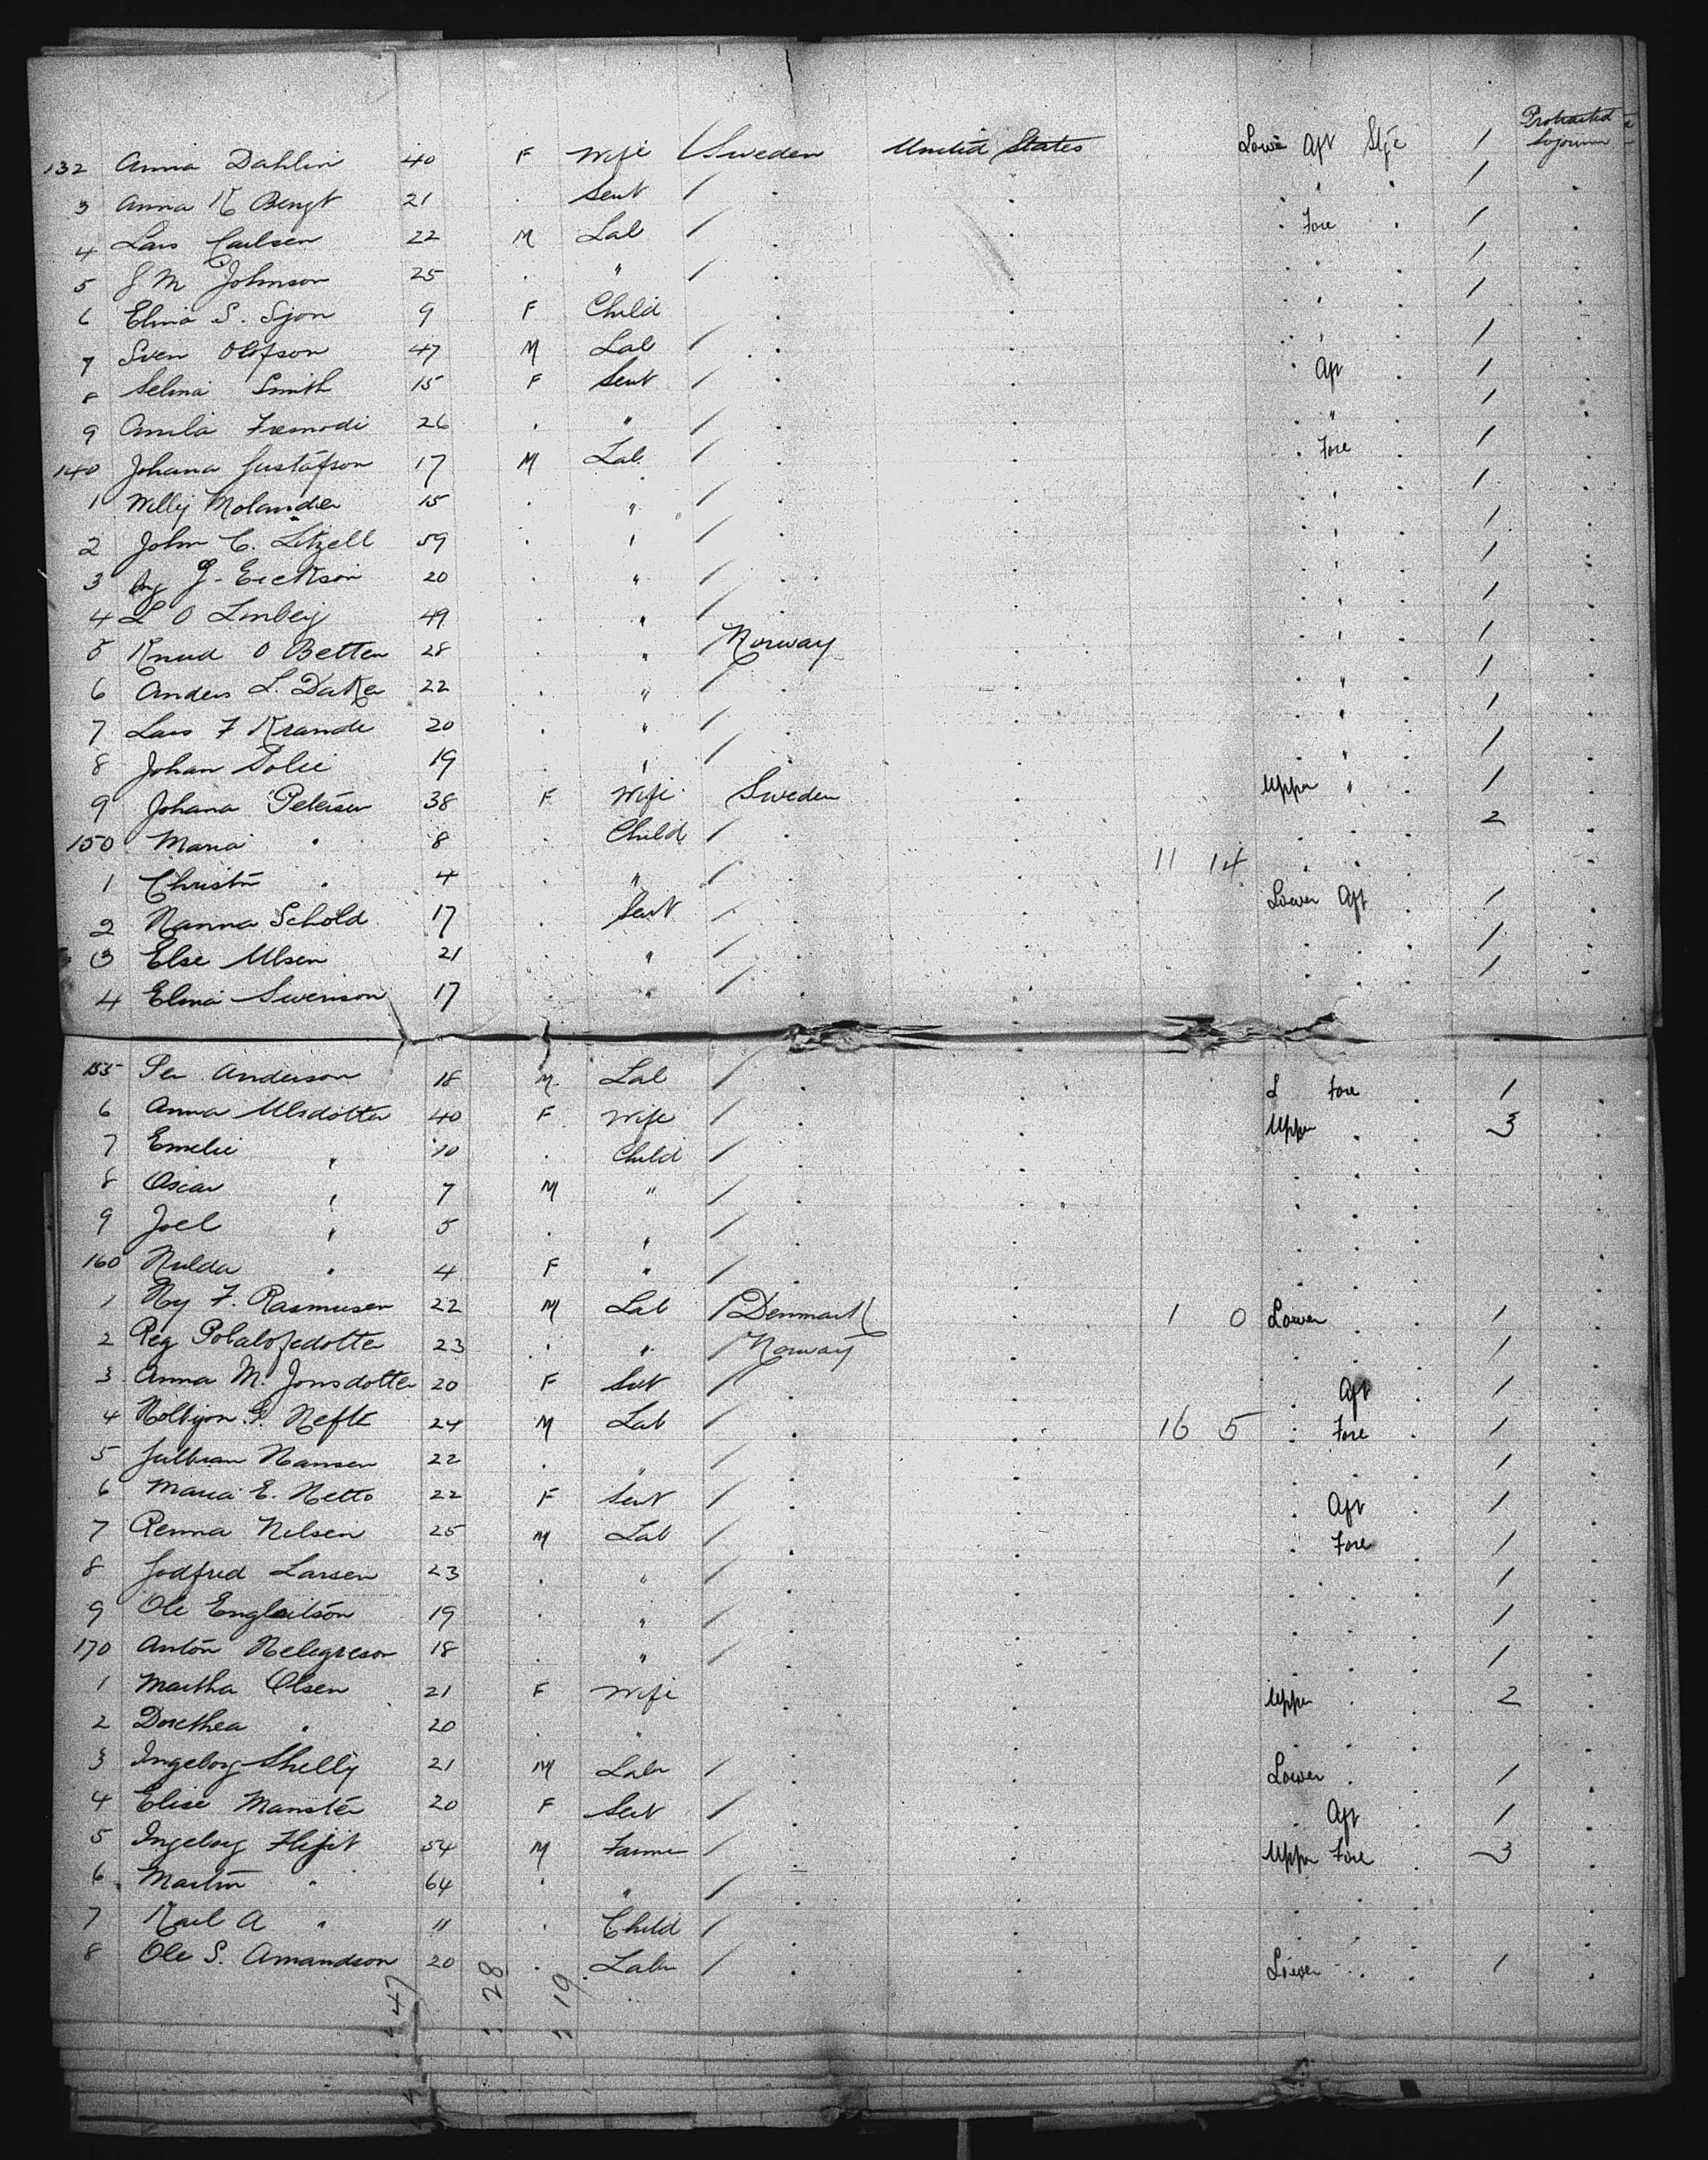 132 Anna Dahlin 40 F Wife / Sweden United States Lower Aft Stge 1 Protracted Sojourn
3 Anna K Bengt 21 . Sevt / . . . " . 1 .
4 Lars Carlsen 22 M Lab / . . . Fore . 1 .
5 J M Johnson 25 . " / . . . " . 1 .
6 Elina S. Sjon 9 F Child . . . " . 1 .
7 Sven Olofson 47 M Lab / . . . " . 1 .
8 Selma Smith 15 F Sevt / . . . Aft . 1 .
9 Amila 26 . " / . . . " . 1 .
140 Johana Gustafson 17 M Lab / . . . Fore . 1 .
1 Willy Molander 15 . " / . . . " . 1 .
2 John C. Litzell 59 . " / . . . " . 1 .
3 J. Erickson 20 . " / . . . " . 1 .
4 L O Linberg 49 . " / . . . " . 1 .
5 Knud O Betten 28 . " Norway . . " . 1 .
6 Anders L. Daker 22 . " / . . . " . 1 .
7 Lars F Krande 20 . " / . . . " . 1 .
8 Johan Solie 19 . " / . . . " . 1 .
9 Johana Petersen 38 F Wife Sweden . Upper " . 1 .
150 Maria " 8 . Child / . . . . . 2 .
1 Christn " 4 . " / . . 11 14 . . .
2 Hanna Schold 17 . Sevt / . . Lower Aft . 1 .
3 Else Ulsen 21 . " / . . . . . 1 .
4 Elina Swenson 17 . " / . . . . . 1 .
155 Per Anderson 18 M Lab / . . L Fore . 1 .
6 Anna Ulsdotter 40 F Wife / . . Upper . . 3 .
7 Emelie " 10 . Child / . . . . . .
8 Oscar " 7 M " / . . . . . .
9 Joel " 5 . " / . . . . . .
160 Hulda " 4 F " / . . . . . .
1 Hy F. Rasmusen 22 M Lab / Denmark . 1 0 Lower . . 1 .
2 23 . " / Norway . . . . 1 .
3 Anna M. Jonsdotter 20 F Svt / . . . Aft . 1 .
4 24 M Lab / . . 16 5 . Fore . 1 .
5 Hansen 22 . " / . . . . . 1 .
6 Maria E. Netto 22 F Sevt / . . . Aft . 1 .
7 Nilsen 25 M Lab / . . . Fore . 1 .
8 Godfred Larsen 23 . " / . . . . . 1 .
9 Ole Englaitson 19 . " / . . . . . 1 .
170 Anton Helegreson 18 . " / . . . . . 1 .
1 Martha Olsen 21 F Wife . . Upper . . 2 .
2 Dorethea " 20 . " . . . . . .
3 Ingeborg Shelly 21 M Labr / . . Lower . . 1 .
4 Elise Manster 20 F Sevt / . . . Aft . 1 .
5 Ingeborg 54 M Farmer / . . Upper Fore . 3 .
6 Martin " 64 . " / . . . . . .
7 Karl A " 11 . Child / . . . . . .
8 Ole S. Amandson 20 . Labr / . . Lower . . 1 .
47 28 19